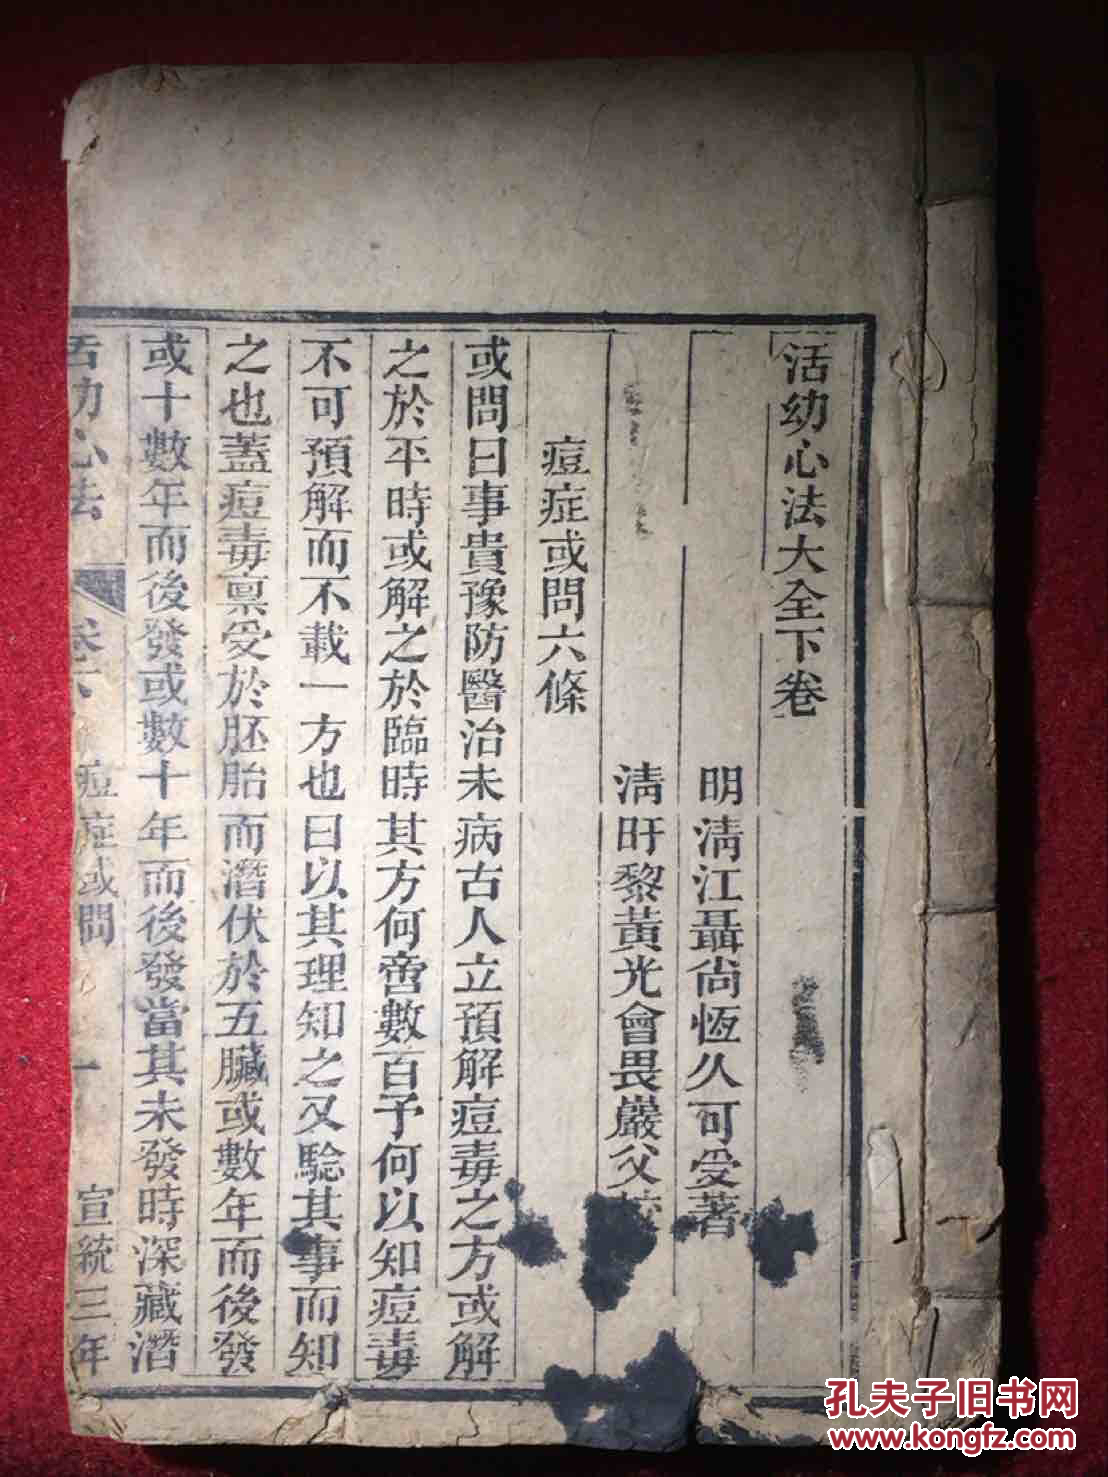 活幼心法大全下卷
明清江聶尙恆久可受著
清旴黎黃光會畏巖父校
痘症或問六條
或問曰事貴豫防醫治未病古人立預解痘毒之方或解
之於平時或解之於臨時其方何啻數百予何以知痘毒
不可預解而不載一方也曰以其理知之又驗其事而知
之也蓋痘毒禀受於胚胎而潛伏於五臟或數年而後發
或十數年而後發或數十年而後發當其未發時深藏潛
活幼心法
卷六
痘症或問
一
宣統三年
孔夫子旧书网
www.kongfz.com